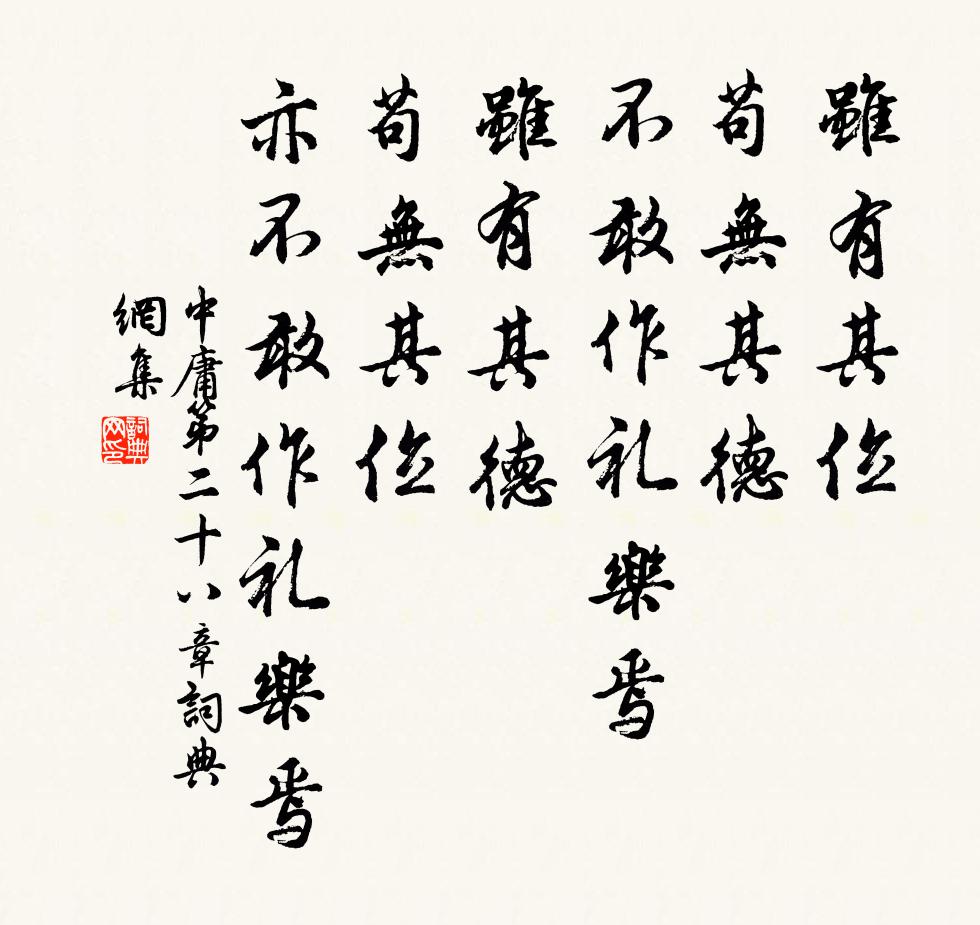 雖有其位
苟無其德
不敢作礼樂焉
雖有其德
苟無其位
亦不敢作礼樂焉
中庸第二十八章詞典
網集
詞典網印